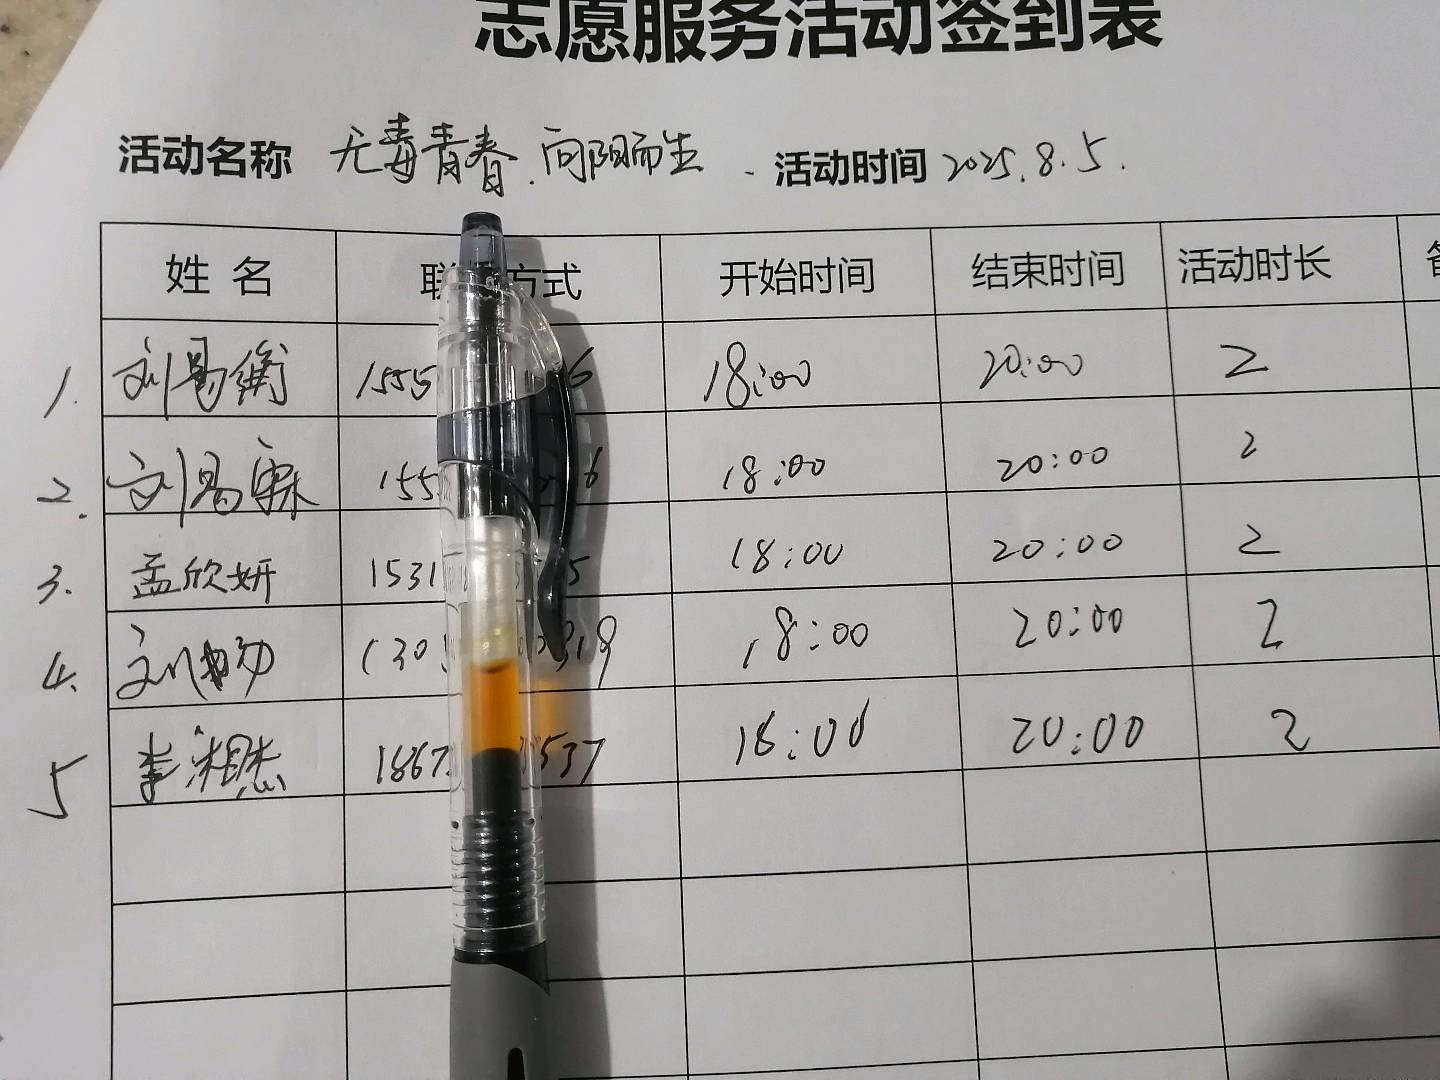 志愿服务活动签到表
活动名称 无毒青春.向阳而生 活动时间 2025.8.5.
姓 名 联 方式 开始时间 结束时间 活动时长
1. 刘易衡 1555 6 18:00 20:00 2
2. 刘易霖 155 6 18:00 20:00 2
3. 孟欣妍 1531 5 5 18:00 20:00 2
4. 刘畅 130 319 18:00 20:00 2
5 李湘杰 1867 537 18:00 20:00 2